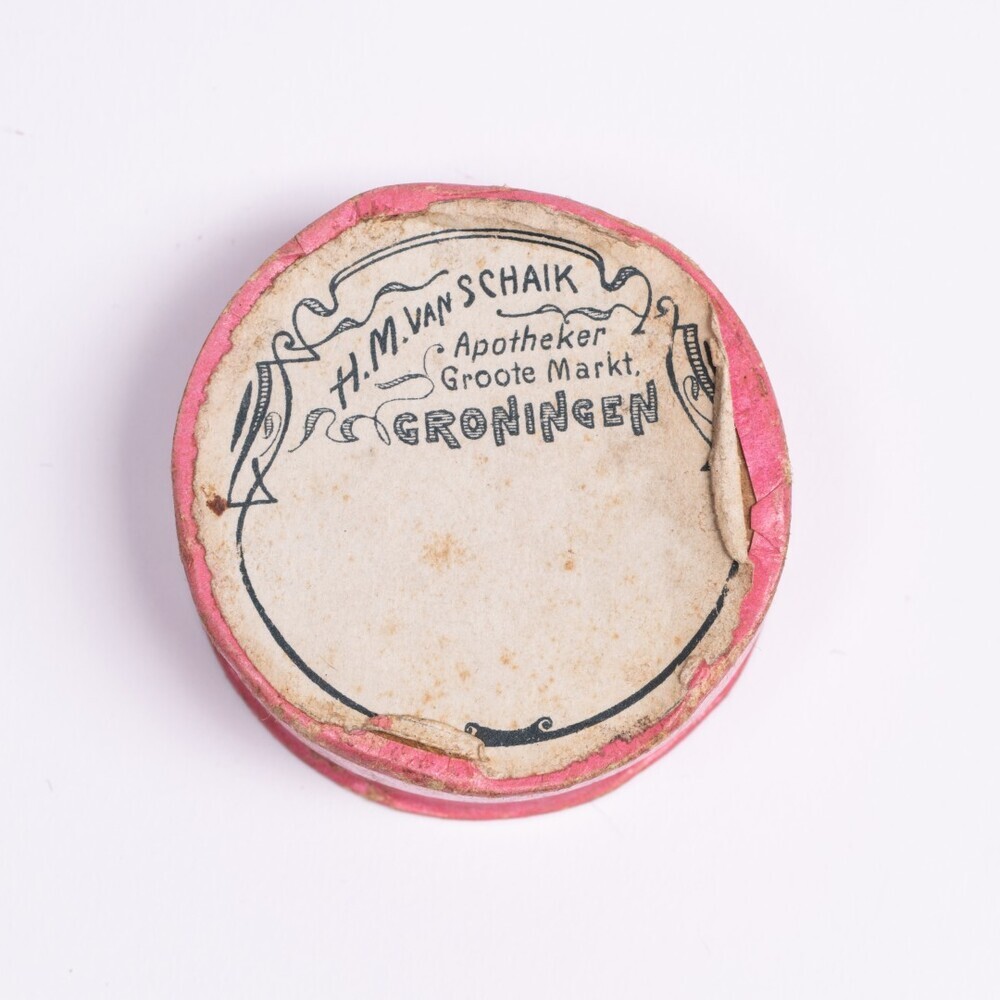 H. M. VAN SCHAIK
Apotheker
Groote Markt.
GRONINGEN